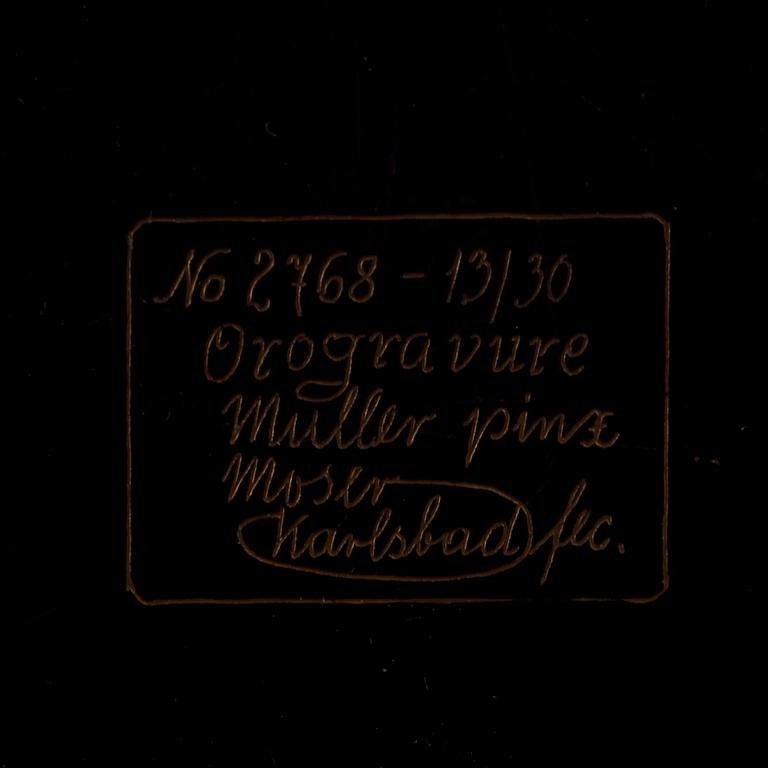 No 2768 - 13/30
Orogravure
Muller pinx
Moser
Karlsbad fec.